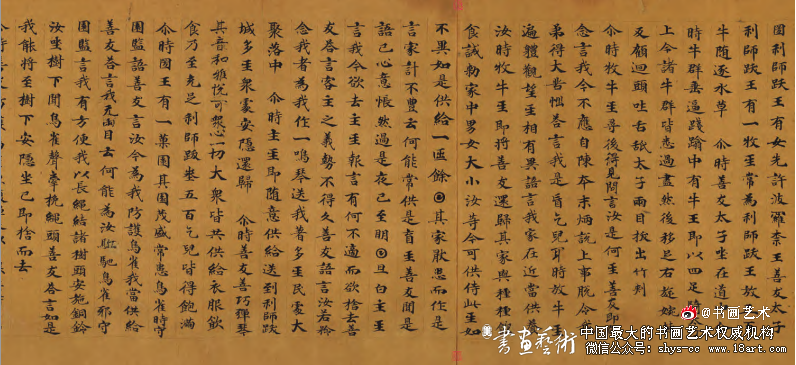 國利師跋王有女先許波羅奈王善友太子
利師跋王有一牧𤯔常為利師跋王放
牛隨逐水草 尒時善友太子坐在道
時牛群垂逼踐蹹中有牛王即以四足騎
上令諸牛群皆悉過盡然後移足右旋婉
及顧迴頭吐舌舐太子兩目挍出竹刾
尒時牧牛𤯔尋後得見問言汝是何𤯔善友即
念言我今不應自陳本末炳說上事脫令
弟得大苦惱荅言我是盲乞兒耳時放牛𤯔
遍體觀望𤯔相有異語言我家在近當供養
汝時牧牛𤯔即將善友還歸其家與種種
食誡勑家中男女大小汝等今可供侍此𤯔如
不異如是供給一𠥱餘𡆠其家厭患而作是
言家計不豐云何能常供是盲𤯔善友聞是
語已心意悵然過是夜已至明𡆠旦白主𤯔
言我今欲去主𤯔報言有何不適而欲捨去善
友荅言客主之義勢不得久善友語言汝若矜
念我者為我作一鳴琴送我著多𤯔民處大
聚落中 尒時主𤯔即隨意供給送到利師跋
城多𤯔衆處安隱還歸 尒時善友善巧彈琴
其音和雅悅可衆心一切大衆皆共供給衣服飲
食乃至充足利師跋城五百乞兒皆得飽滿
尒時國王有一菓園其園茂盛常患鳥雀時守
園監語善友言汝今為我防護鳥雀我當供給
善友荅言我無兩目云何能為汝駈馳鳥雀耶守
園監言我有方便我以長繩結諸樹頭安施銅鈴
汝坐樹下聞鳥雀聲牽挽繩頭善友荅言如是
我能將至樹下安隱坐已即捨而去
書畫藝術
@书画艺术
中国最大的书画艺术权威机构
微信公众号：shys-cc www.18art.com